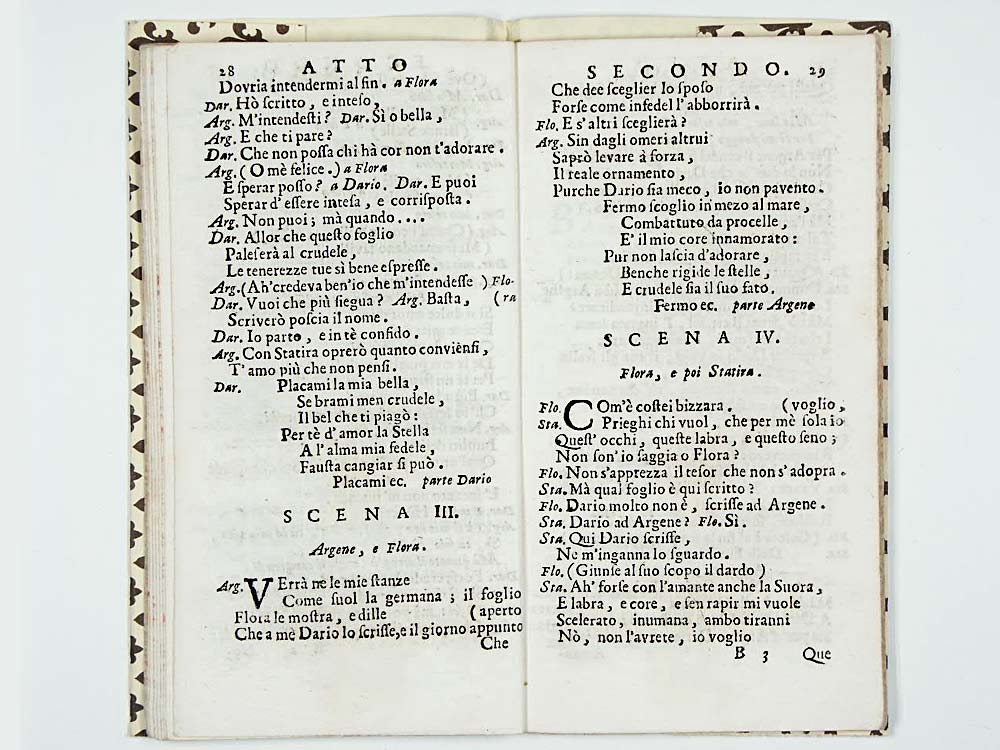 28 ATTO
Dovria intendermi al fin. a Flora
Dar. Hò ſcritto, e inteſo,
Arg. M'intendeſti? Dar. Sì ò bella,
Arg. E che ti pare?
Dar. Che non poſſa chi hà cor non t'adorare.
Arg. (O mè felice.) a Flora
E ſperar poſſo? a Dario. Dar. E puoi
Sperar d'eſſere inteſa, e corriſpoſta.
Arg. Non puoi; mà quando....
Dar. Allor che queſto foglio
Paleſerà al crudele,
Le tenerezze tue sì bene eſpreſſe.
Arg. (Ah'credeva ben'io che m'intendeſſe ) Flo-
Dar. Vuoi che più ſiegua? Arg. Baſta, (ra
Scriverò poſcia il nome.
Dar. Io parto, e in tè confido.
Arg. Con Statira oprerò quanto convienſi,
T'amo più che non penſi.
Dar. Placami la mia bella,
Se brami men crudele,
Il bel che ti piagò:
Per tè d'amor la Stella
A l'alma mia fedele,
Fauſta cangiar ſi può.
Placami ec. parte Dario
SCENA III.
Argene, e Flora.
Arg. VErrà ne le mie ſtanze
Come ſuol la germana; il foglio
Flora le moſtra, e dille (aperto
Che a mè Dario lo ſcriſſe, e il giorno appunto
Che
SECONDO. 29
Che dee ſceglier lo ſpoſo
Forſe come infedel l'abborrirà.
Flo. E s'altri ſceglierà?
Arg. Sin dagli omeri altrui
Saprò levare à forza,
Il reale ornamento,
Purche Dario ſia meco, io non pavento.
Fermo ſcoglio in mezo al mare,
Combattuto da procelle,
E' il mio core innamorato:
Pur non laſcia d'adorare,
Benche rigide le ſtelle,
E crudele ſia il ſuo fato.
Fermo ec. parte Argene
SCENA IV.
Flora, e poi Statira.
Flo. COm'è coſtei bizzara. (voglio,
Sta. Prieghi chi vuol, che per mè ſola io
Queſt' occhi, queſte labra, e queſto ſeno;
Non ſon' io ſaggia o Flora?
Flo. Non s'apprezza il teſor che non s'adopra.
Sta. Mà qual foglio è qui ſcritto?
Flo. Dario molto non è, ſcriſſe ad Argene.
Sta. Dario ad Argene? Flo. Sì.
Sta. Qui Dario ſcriſſe,
Ne m'inganna lo ſguardo.
Flo. (Giunſe al ſuo ſcopo il dardo)
Sta. Ah' forſe con l'amante anche la Suora,
E labra, e core, e ſen rapir mi vuole
Scelerato, inumana, ambo tiranni
Nò, non l'avrete, io voglio
B 3 Que